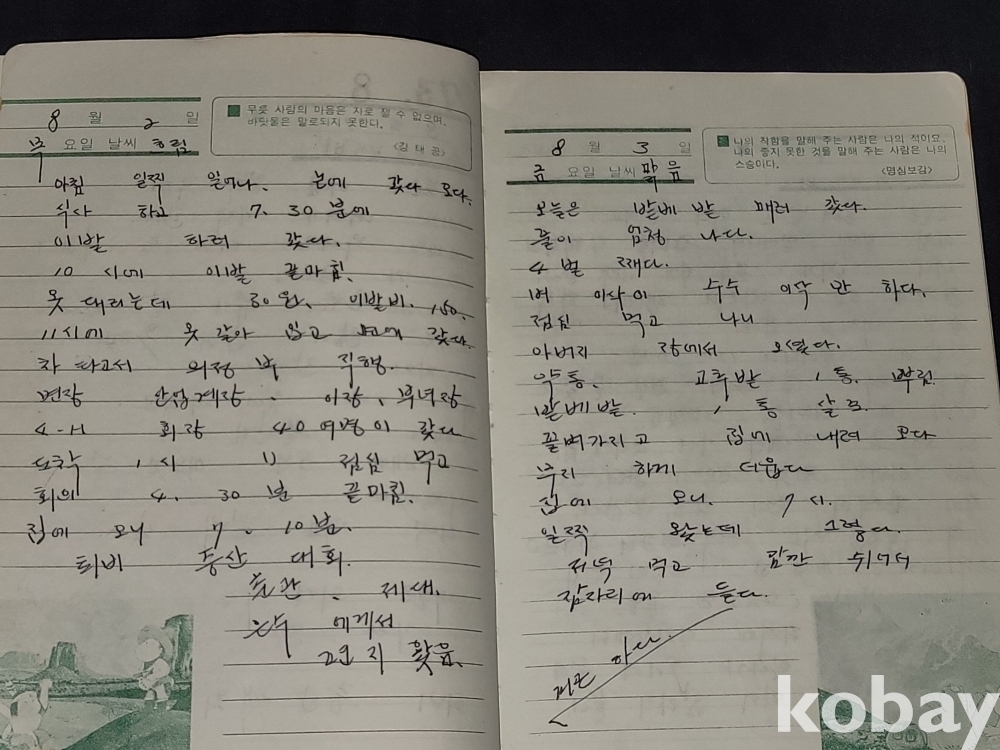 8 월 2 일
목 요일 날씨 흐림
무릇 사람의 마음은 자로 잴 수 없으며,
바닷물은 말로되지 못한다.
〈강태공〉
아침 일찍 일어나. 논에 갔다 오다.
식사 하고 7. 30 분에
이발 하러 갔다.
10 시에 이발 끝마침.
옷 대리는데 30원. 이발비. 150.
11시에 옷 갈아 입고 갔다.
차 타고서 의정부 직행.
면장 산업계장. 이장, 부녀장
4-H 회장 40 여명이 갔다
도착 1시 11 점심 먹고
회의 4. 30 분 끝마침.
집에 오니 7. 10분.
퇴비 증산 대회.
제대.
에게서
편지 왔음.
8 월 3 일
금 요일 날씨 맑음
나의 착함을 말해 주는 사람은 나의 적이요,
나의 좋지 못한 것을 말해 주는 사람은 나의
스승이다.
〈명심보감〉
오늘은 밭베 밭 매러 갔다.
풀이 엄청 나다.
4 벌 째다.
벼 이삭이 수수 이삭 만 하다.
점심 먹고 나니
아버지 장에서 오셨다.
약통. 고추밭 1 통. 뿌림.
밭베밭. 1 통 살포.
끝벼가지고 집에 내려 오다
무지 하게 더웁다
집에 오니. 7 시.
일찍 왔는데 그렇다.
저녁 먹고 잠깐 쉬어서
잠자리에 들다.
피곤 하다
kobay